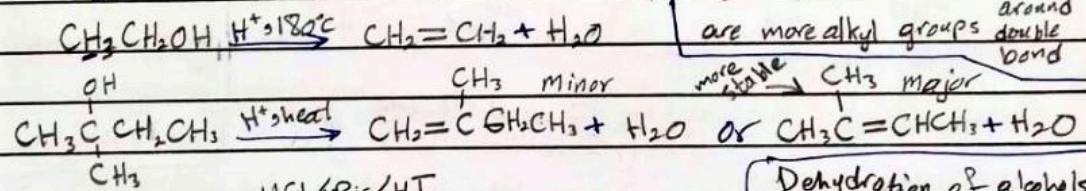 around
CH3CH2OH H+, 180°C CH2=CH2 + H2O are more alkyl groups double
bond
OH CH3 minor more stable CH3 major
CH3C CH2CH3 H+, heat CH2=C CH2CH3 + H2O or CH3C=CHCH3 + H2O
CH3
Dehydration of alcohols